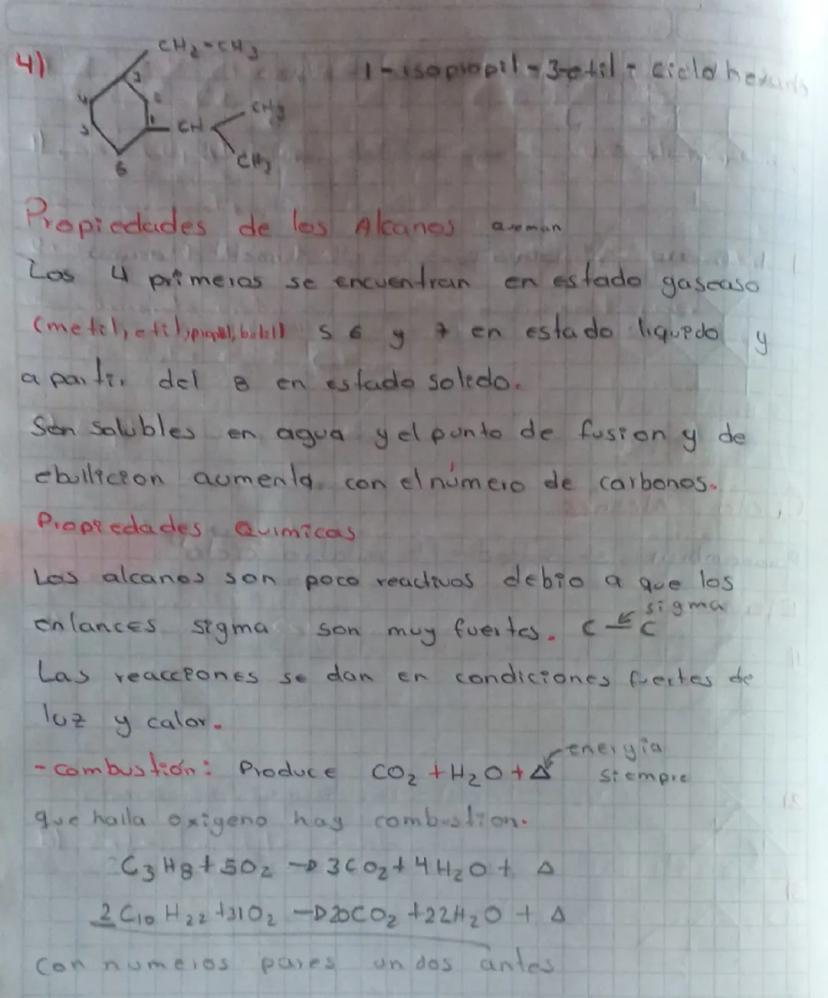 4)
CH2-CH3
1-isopropil-3-etil-ciclohexano
4 3 2
5 1 CH CH3
CH3
6
Propiedades de los Alcanos
Los 4 primeros se encuentran en estado gaseaso
(metil, etil, propil, butil) 5 6 y 7 en estado liquido y
a partir del 8 en estado solido.
Son solubles en agua y el punto de fusion y de
ebullicion aumenta con el número de carbonos.
Propiedades Quimicas
Los alcanos son poco reactivos debio a que los
sigma
enlances sigma son muy fuertes. C-C
Las reacciones se dan en condiciones fuertes de
luz y calor.
energia
-combustion: Produce CO2 + H2O + Δ siempre
que halla oxigeno hay combustion.
C3H8 + 5O2 → 3CO2 + 4H2O + Δ
2C10H22 + 31O2 → 20CO2 + 22H2O + Δ
con numeros pares un dos antes